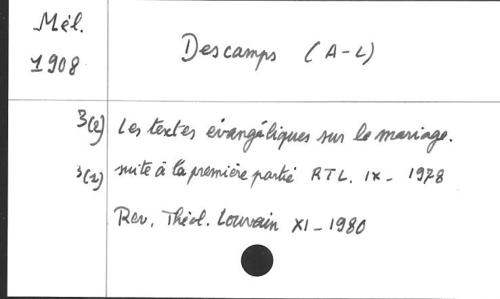 Mél.
1908
Descamps (A-L)
3(2) Les textes évangéliques sur le mariage.
3(1) suite à la première partie RTL. IX - 1978
Rev. Théol. Louvain XI - 1980